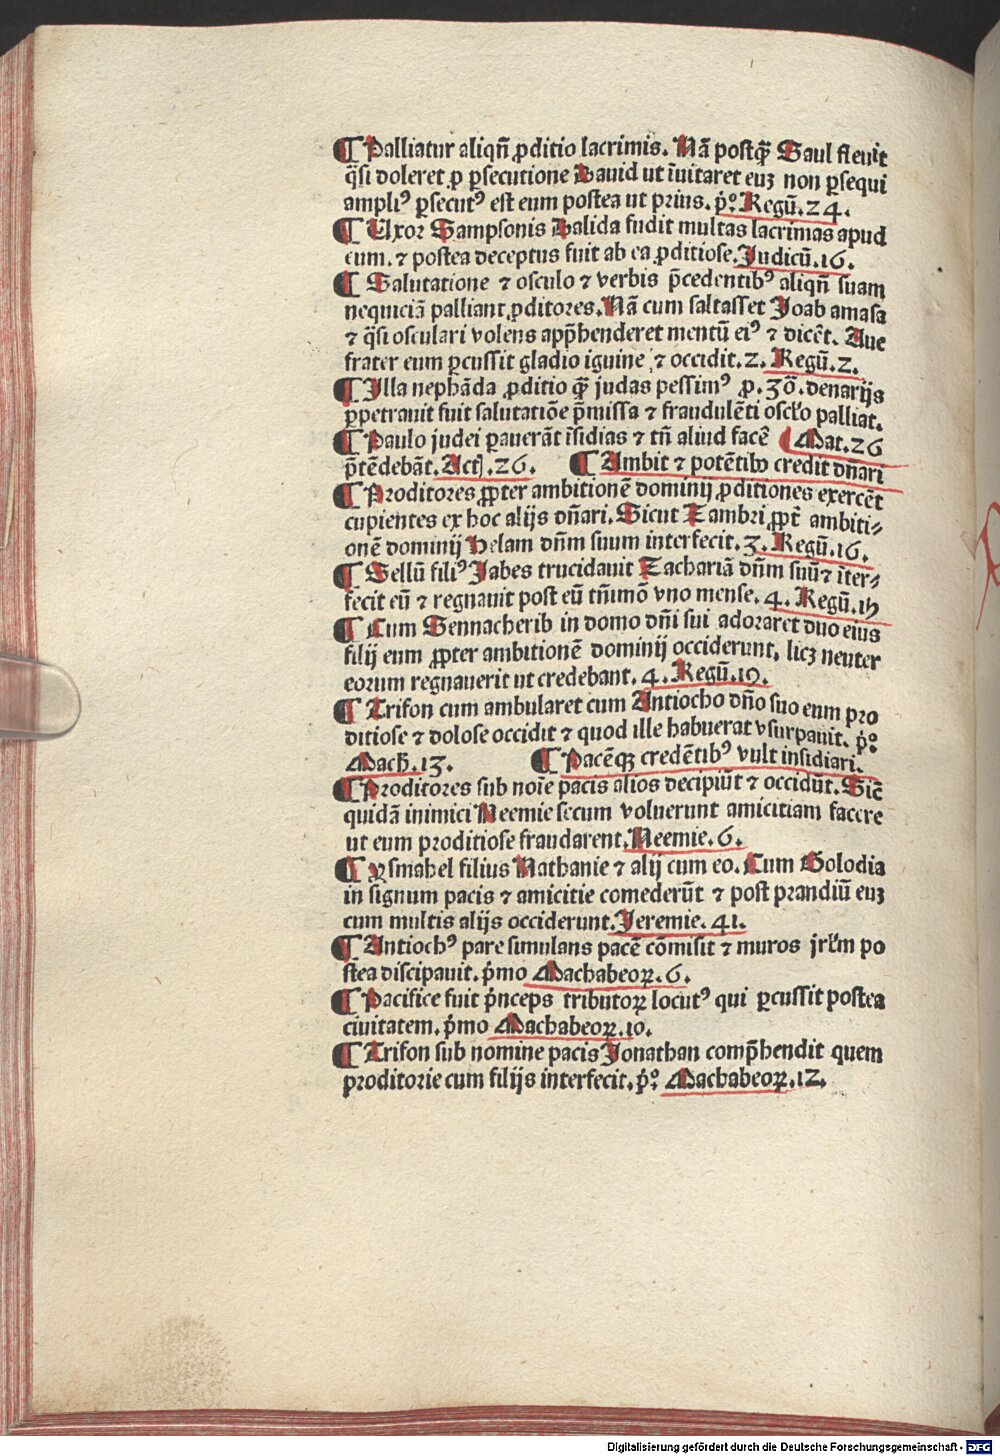 ¶ Palliatur aliqn̄ ꝓditio lacrimis. Nā postꝙ̄ Saul fleuit
q̄si doleret ꝓ ꝑsecutione Dauid ut īuitaret euꝫ non ꝑsequi
ampliꝰ ꝑsecutꝰ est eum postea ut prius. p̊º Regū. 24.
¶ Uxor Sampsonis Dalida fudit multas lacrimas apud
eum. ⁊ postea deceptus fuit ab ea ꝓditiose. Iudicū. 16.
¶ Salutatione ⁊ osculo ⁊ verbis p̄cedentibꝰ aliqn̄ suam
nequiciā palliant ꝓditores. Nā cum saltasset Ioab amasa
⁊ q̄si osculari volens app̄henderet mentū eiꝰ ⁊ dicēt. Aue
frater eum ꝑcussit gladio iguine ⁊ occidit. 2. Regū. 2.
¶ Illa nephāda ꝓditio ꝙ̄ judas pessimꝰ ꝓ. 30̄. denarijs
ꝑpetrauit fuit salutatiōe p̄missa ⁊ fraudulēti osclo palliat.
¶ Paulo judei ꝑauerāt īsidias ⁊ tn̄ aliud facē (Mat. 26
p̄tēdebāt. Act. 26. ¶ Ambit ⁊ potētibꝰ credit dn̄ari
¶ Proditores ꝓpter ambitionē dominij ꝓditiones exercēt
cupientes ex hoc alijs dn̄ari. Sicut Zambri ꝓpt̄ ambiti⸗
onē dominij Helam dn̄m suum interfecit. 3. Regū. 16.
¶ Sellū filiꝰ Jabes trucidauit Zachariā dn̄m suū ⁊ īter⸗
fecit eū ⁊ regnauit post eū tn̄imō vno mense. 4. Regū. 15
¶ Cum Sennacherib in domo dn̄i sui adoraret duo eius
filij eum ꝓpter ambitionē dominij occiderunt, licꝫ neuter
eorum regnauerit ut credebant. 4. Regū. 19.
¶ Trifon cum ambularet cum Antiocho dn̄o suo eum pro
ditiose ⁊ dolose occidit ⁊ quod ille habuerat vsurpauit. p̊º
Mach̄. 13. ¶ Pacēqꝫ credētibꝰ vult insidiari.
¶ Proditores sub noīe pacis alios decipiūt ⁊ occidūt. Sic̄
quidā inimici Neemie secum voluerunt amicitiam facere
ut eum proditiose fraudarent. Neemie. 6.
¶ Ysmahel filius Nathanie ⁊ alij cum eo. Cum Golodia
in signum pacis ⁊ amicitie comederūt ⁊ post prandiū euꝫ
cum multis alijs occiderunt. Jeremie. 41.
¶ Antiochꝰ pare simulans pacē cōmisit ⁊ muros jrlm̄ po
stea discipauit. p̊mo Machabeoꝝ. 6.
¶ Pacifice fuit p̊nceps tributoꝝ locutꝰ qui ꝑcussit postea
ciuitatem. p̊mo Machabeoꝝ. 10.
¶ Trifon sub nomine pacis Jonathan comp̄hendit quem
proditorie cum filijs interfecit. p̊º Machabeoꝝ. 12.
Digitalisierung gefördert durch die Deutsche Forschungsgemeinschaft - DFG